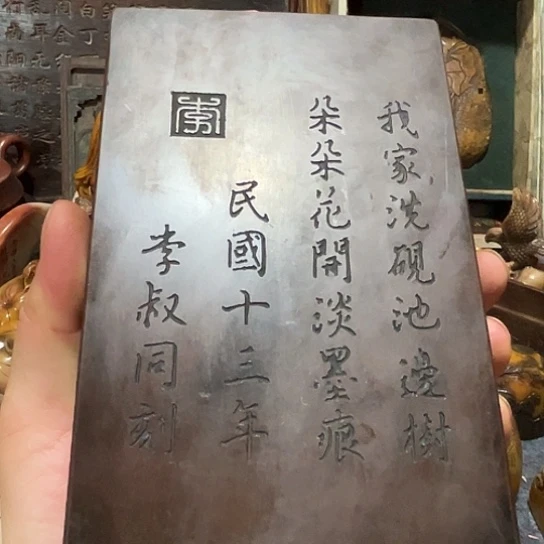 我家洗硯池邊樹
朵朵花開淡墨痕
民國十三年
李叔同刻
李